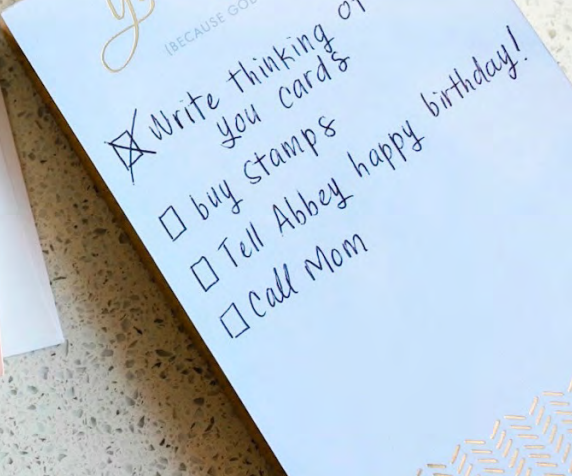 (BECAUSE GOD
Write thinking of
you cards
buy stamps
Tell Abbey happy birthday!
Call Mom